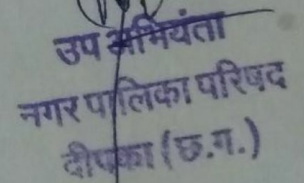 उप अभियंता
नगर पालिका परिषद
दीपका (छ.ग.)